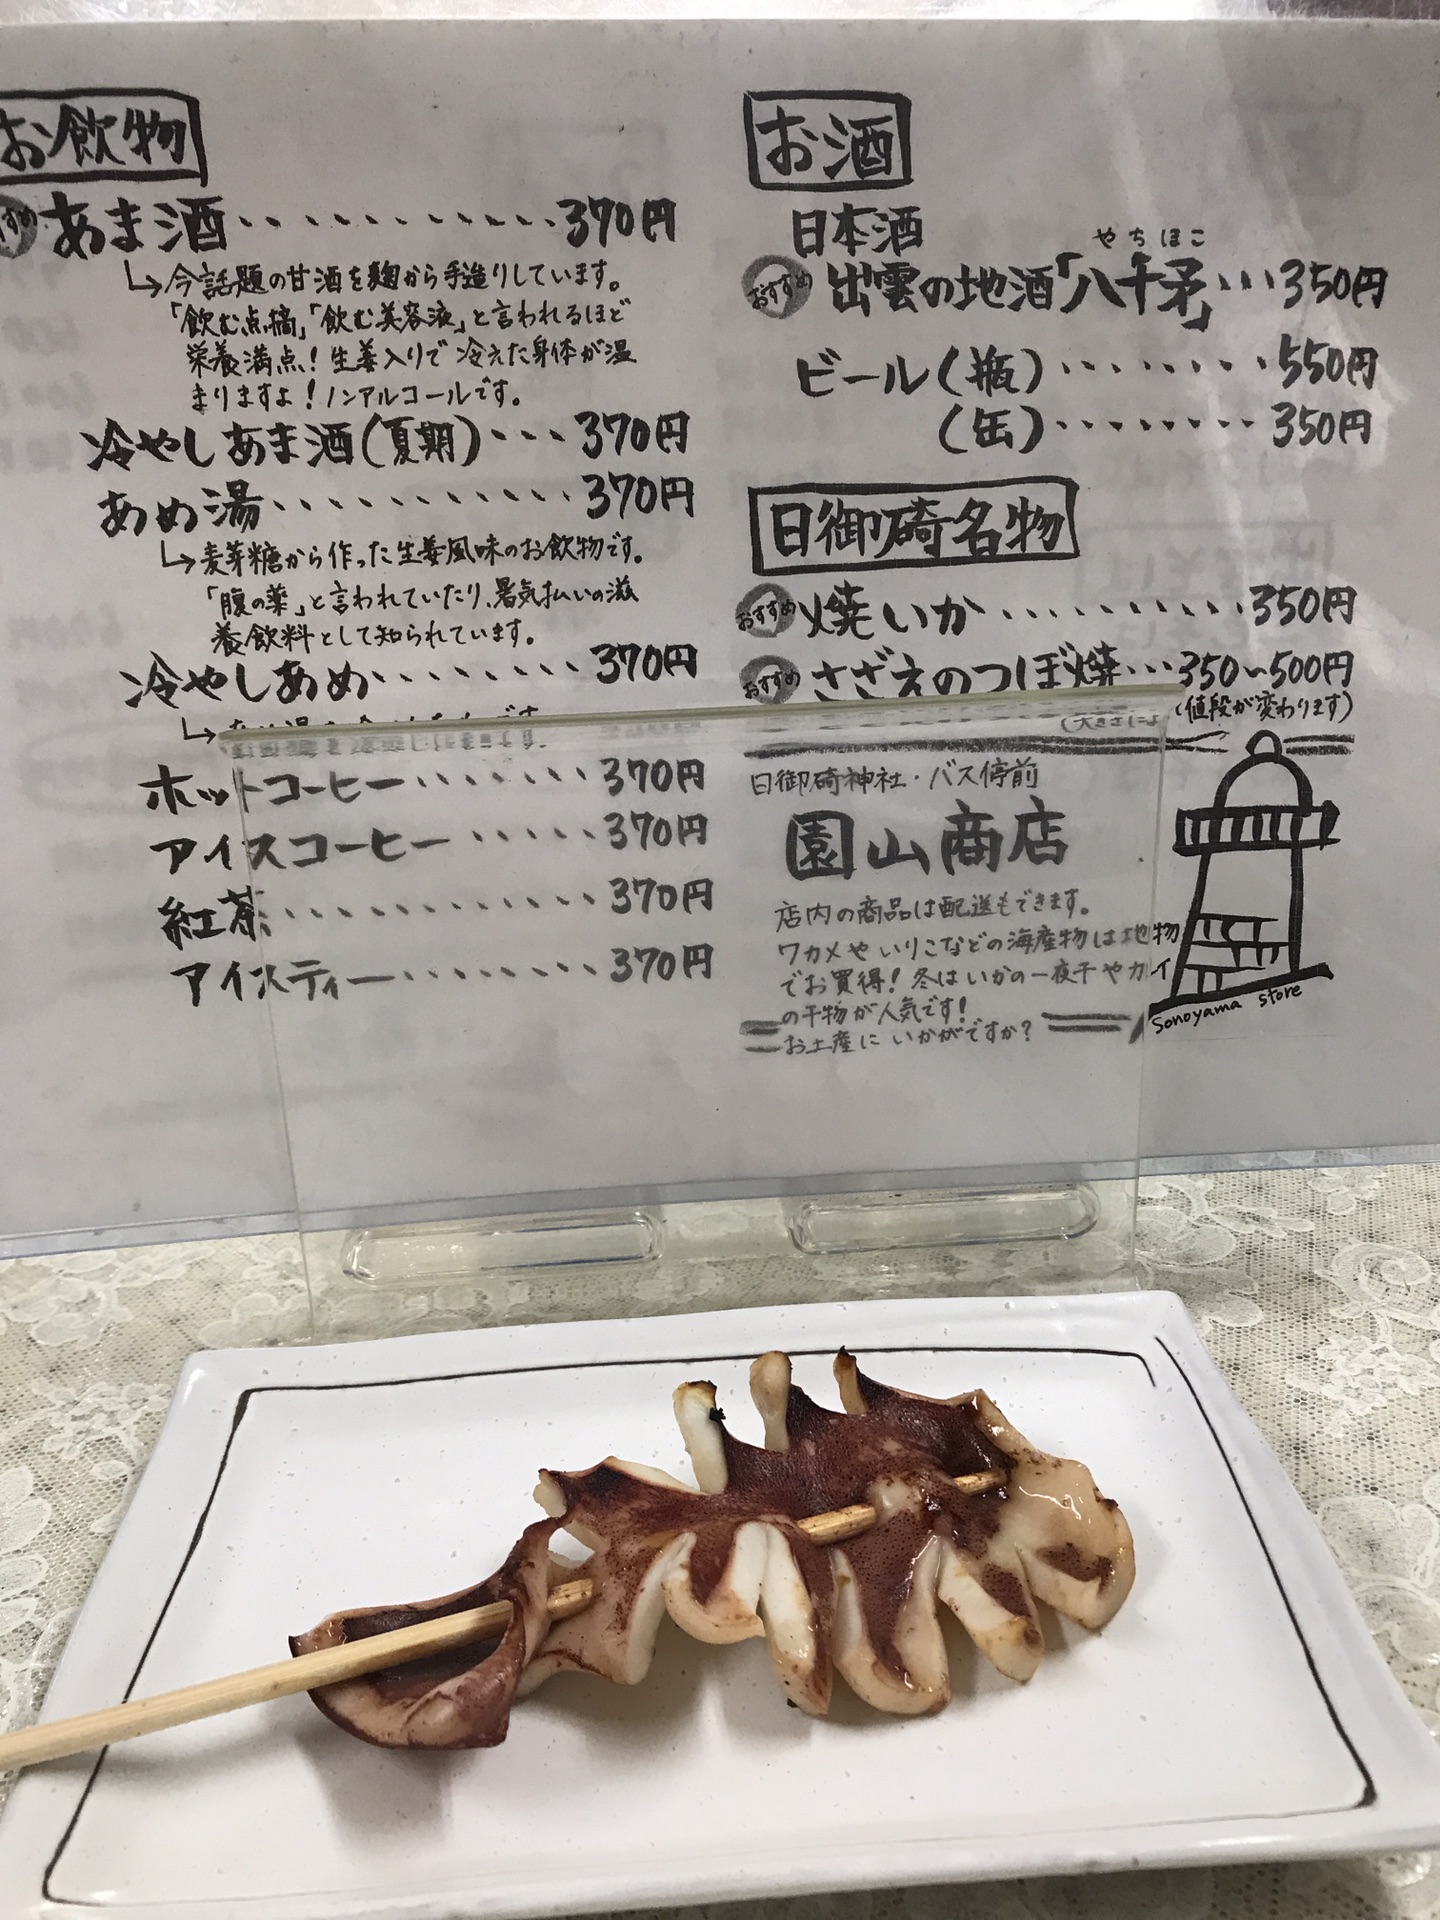 お飲物
あま酒・・・・・・・・・・・・370円
今話題の甘酒を麹から手造りしています。
「飲む点滴」「飲む美容液」と言われるほど
栄養満点!生姜入りで冷えた身体が温
まりますよ!ノンアルコールです。
冷やしあま酒(夏期)・・・370円
あめ湯・・・・・・・・・・・・370円
麦芽糖から作った生姜風味のお飲物です。
「腹の薬」と言われていたり、暑気払いの滋
養飲料として知られています。
冷やしあめ・・・・・・・・370円
ホットコーヒー・・・・・・・370円
アイスコーヒー・・・・・370円
紅茶・・・・・・・・・・・・・370円
アイスティー・・・・・・・・370円
お酒
日本酒
やちほこ
おすすめ 出雲の地酒「八千矛」・・・350円
ビール(瓶)・・・・・・・・550円
(缶)・・・・・・・・350円
日御碕名物
おすすめ 焼いか・・・・・・・・・・350円
おすすめ さざえのつぼ焼・・・350〜500円
値段が変わります)
日御碕神社・バス停前
園山商店
店内の商品は配送もできます。
ワカメやいりこなどの海産物は地物
でお買得!冬はいかの一夜干やカレイ
の干物が人気です!
お土産にいかがですか?
Sonoyama store